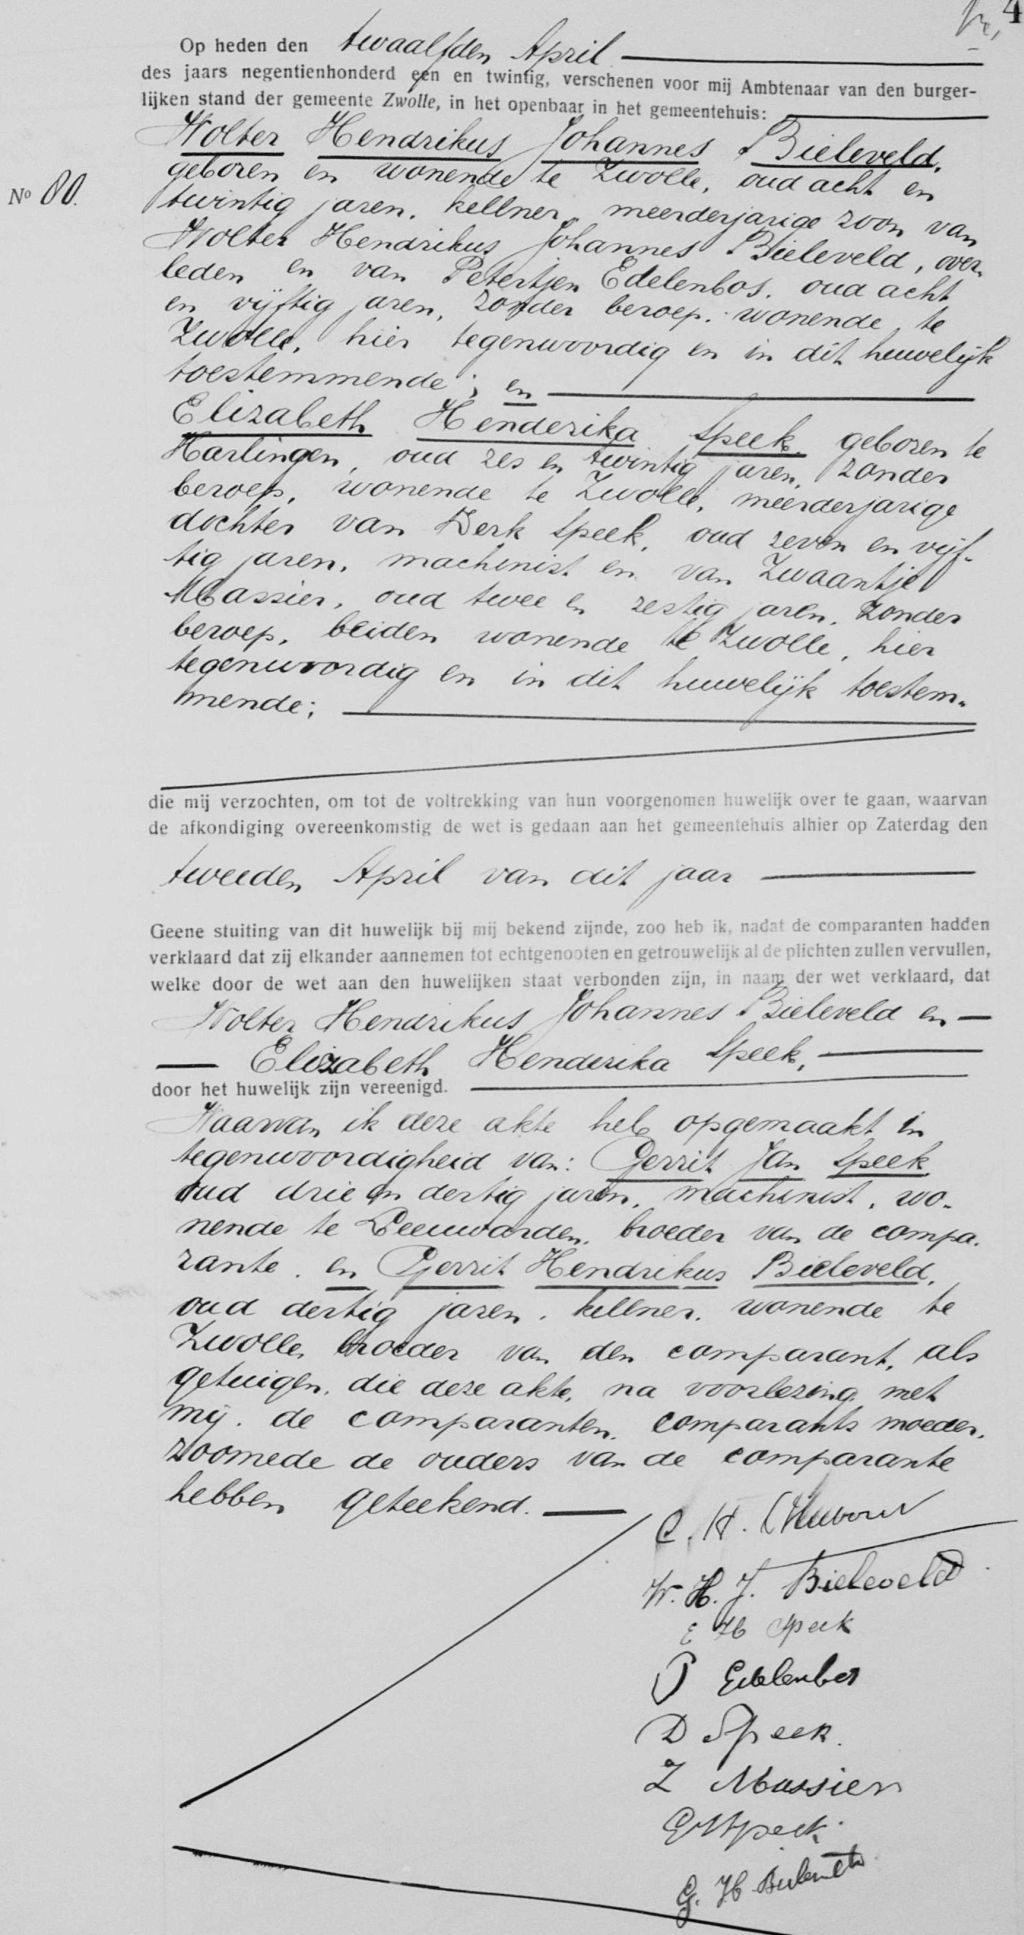 4
Op heden den twaalfden April
des jaars negentienhonderd een en twintig, verschenen voor mij Ambtenaar van den burger-
lijken stand der gemeente Zwolle, in het openbaar in het gemeentehuis:
Wolter Hendrikus Johannes Bieleveld,
No 80.
geboren en wonende te Zwolle, oud acht en
twintig jaren, kellner, meerderjarige zoon van
Wolter Hendrikus Johannes Bieleveld, over-
leden en van Petertjen Edelenbos, oud acht
en vijftig jaren, zonder beroep, wonende te
Zwolle, hier tegenwoordig en in dit huwelijk
toestemmende; en
Elizabeth Henderika Speek, geboren te
Harlingen, oud zes en twintig jaren, zonder
beroep, wonende te Zwolle, meerderjarige
dochter van Derk Speek, oud zeven en vijf-
tig jaren, machinist en van Zwaantje
Massier, oud twee en zestig jaren, zonder
beroep, beiden wonende te Zwolle, hier
tegenwoordig en in dit huwelijk toestem-
mende;
die mij verzochten, om tot de voltrekking van hun voorgenomen huwelijk over te gaan, waarvan
de afkondiging overeenkomstig de wet is gedaan aan het gemeentehuis alhier op Zaterdag den
tweeden April van dit jaar
Geene stuiting van dit huwelijk bij mij bekend zijnde, zoo heb ik, nadat de comparanten hadden
verklaard dat zij elkander aannemen tot echtgenooten en getrouwelijk al de plichten zullen vervullen,
welke door de wet aan den huwelijken staat verbonden zijn, in naam der wet verklaard, dat
Wolter Hendrikus Johannes Bieleveld en
Elizabeth Henderika Speek,
door het huwelijk zijn vereenigd.
Waarvan ik deze akte heb opgemaakt in
tegenwoordigheid van: Gerrit Jan Speek
oud drie en dertig jaren, machinist, wo-
nende te Leeuwarden, broeder van de compa-
rante, en Gerrit Hendrikus Bieleveld,
oud dertig jaren, kellner, wonende te
Zwolle, broeder van den comparant, als
getuigen, die deze akte, na voorlezing met
mij, de comparanten, comparants moeder,
zoomede de ouders van de comparante
hebben geteekend.
C. H.
W. H. J. Bieleveld
E H Speek
P Edelenbos
D Speek.
Z Massier
G J Speek.
G. H Bieleveld